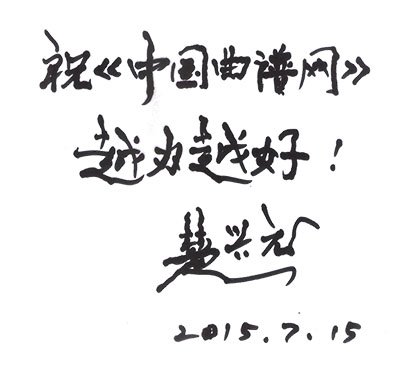 祝《中国曲谱网》
越办越好！
楚兴元
2015.7.15